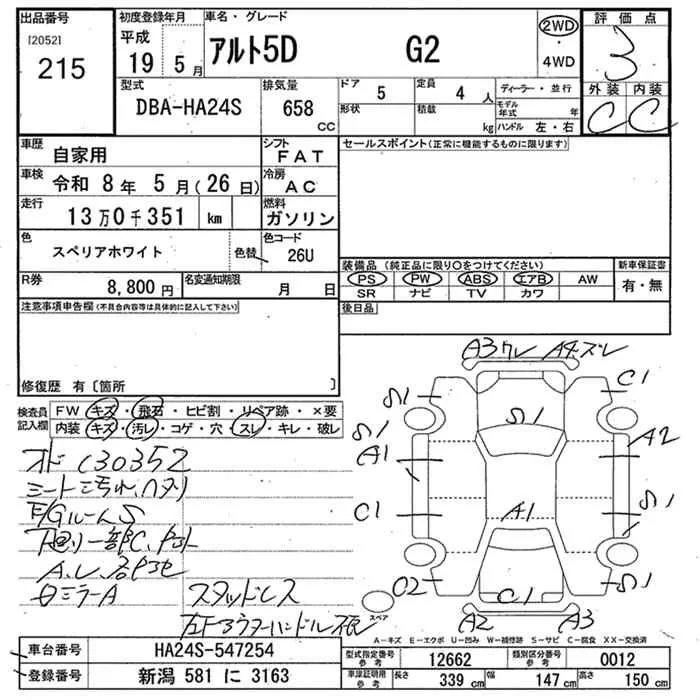 出品番号 初度登録年月 車名・グレード 評価点
[2052] 平成 アルト5D G2 2WD
215 19年5月 4WD 3
型式 排気量 ドア 5 定員 4人 ディーラー・並行 外装 内装
DBA-HA24S 658 CC 形状 積載 kg モデル年式 年 C C
ハンドル 左・右
車歴 自家用 シフト FAT セールスポイント(正常に機能するものに限ります)
車検 令和 8年 5月(26日) 冷房 AC
走行 13万0千351 km 燃料 ガソリン
色 スペリアホワイト 色替 色コード 26U
装備品(純正品に限り○をつけてください) 新車保証書
R券 8,800円 名変通知期限 月 日
PS PW ABS エアB AW 有・無
SR ナビ TV カワ
注意事項申告欄(不具合内容等は具体的に記入して下さい) 後日品
修復歴 有〔箇所 〕
検査員記入欄 FW キズ・飛石・ヒビ割・リペア跡・×要
内装 キズ・汚レ・コゲ・穴・スレ・キレ・破レ
A3 A4ズレ
C1
S1 S1
S1 A2
A1
C1 A1 S1
C2 C1 S1
A2 A3
130352
シート汚れ、ヘタリ
F/GルームS
下廻り一部C
ミラーA スタッドレス
スペア
A−キズ E−エクボ U−凹み W−補修跡 S−サビ C−腐食 XX−交換済
車台番号 HA24S-547254
型式指定番号 参考 12662 類別区分番号 参考 0012
登録番号 新潟 581 に 3163
車庫証明用 参考 長さ 339 cm 幅 147 cm 高さ 150 cm